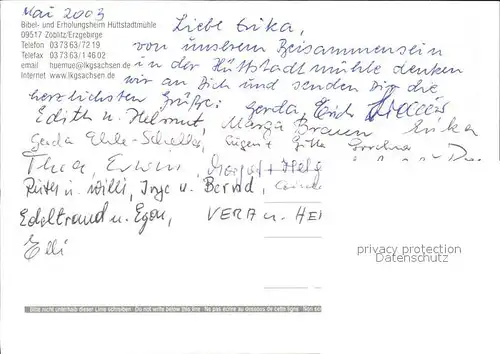 Mai 2003
Bibel- und Erholungsheim Hüttstadtmühle
09517 Zöblitz/Erzgebirge
Telefon 0 37 363/72 19
Telefax 0 37 363/1 46 02
email huemue@lkgsachsen.de
Internet www.lkgsachsen.de
Liebe Erika,
von unserem Beisammensein
in der Hüttstadtmühle denken
wir an Dich und senden Dir die
herzlichsten Grüße: Gerda, Erich
Edith u. Helmut, Braun Erika
Gerda
Thea, Erwin, Margot + Helga
Ruth u. Willi, Inge u. Bernd,
Edeltraud u. Egon, VERA u. HE
Elli
privacy protection
Datenschutz
Bitte nicht unterhalb dieser Linie schreiben Do not write below this line Ne pas écrire au dessous de cette ligne Non